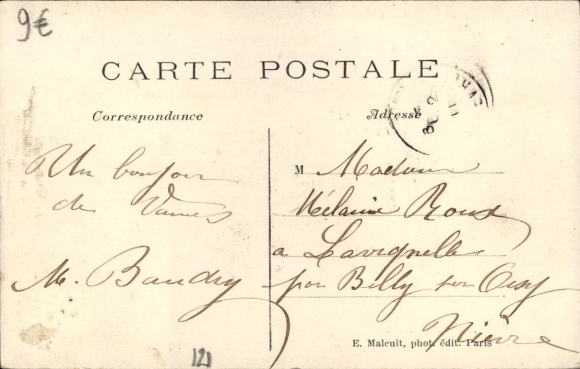 9€
CARTE POSTALE
Correspondance
Adresse
Un bonjour
de Vanves
M. Baudry
M Madame
Mélanie Roux
a Lavignelle
par Billy sur Oisy
Nièvre
E. Malcuit, phot. édit. Paris
121